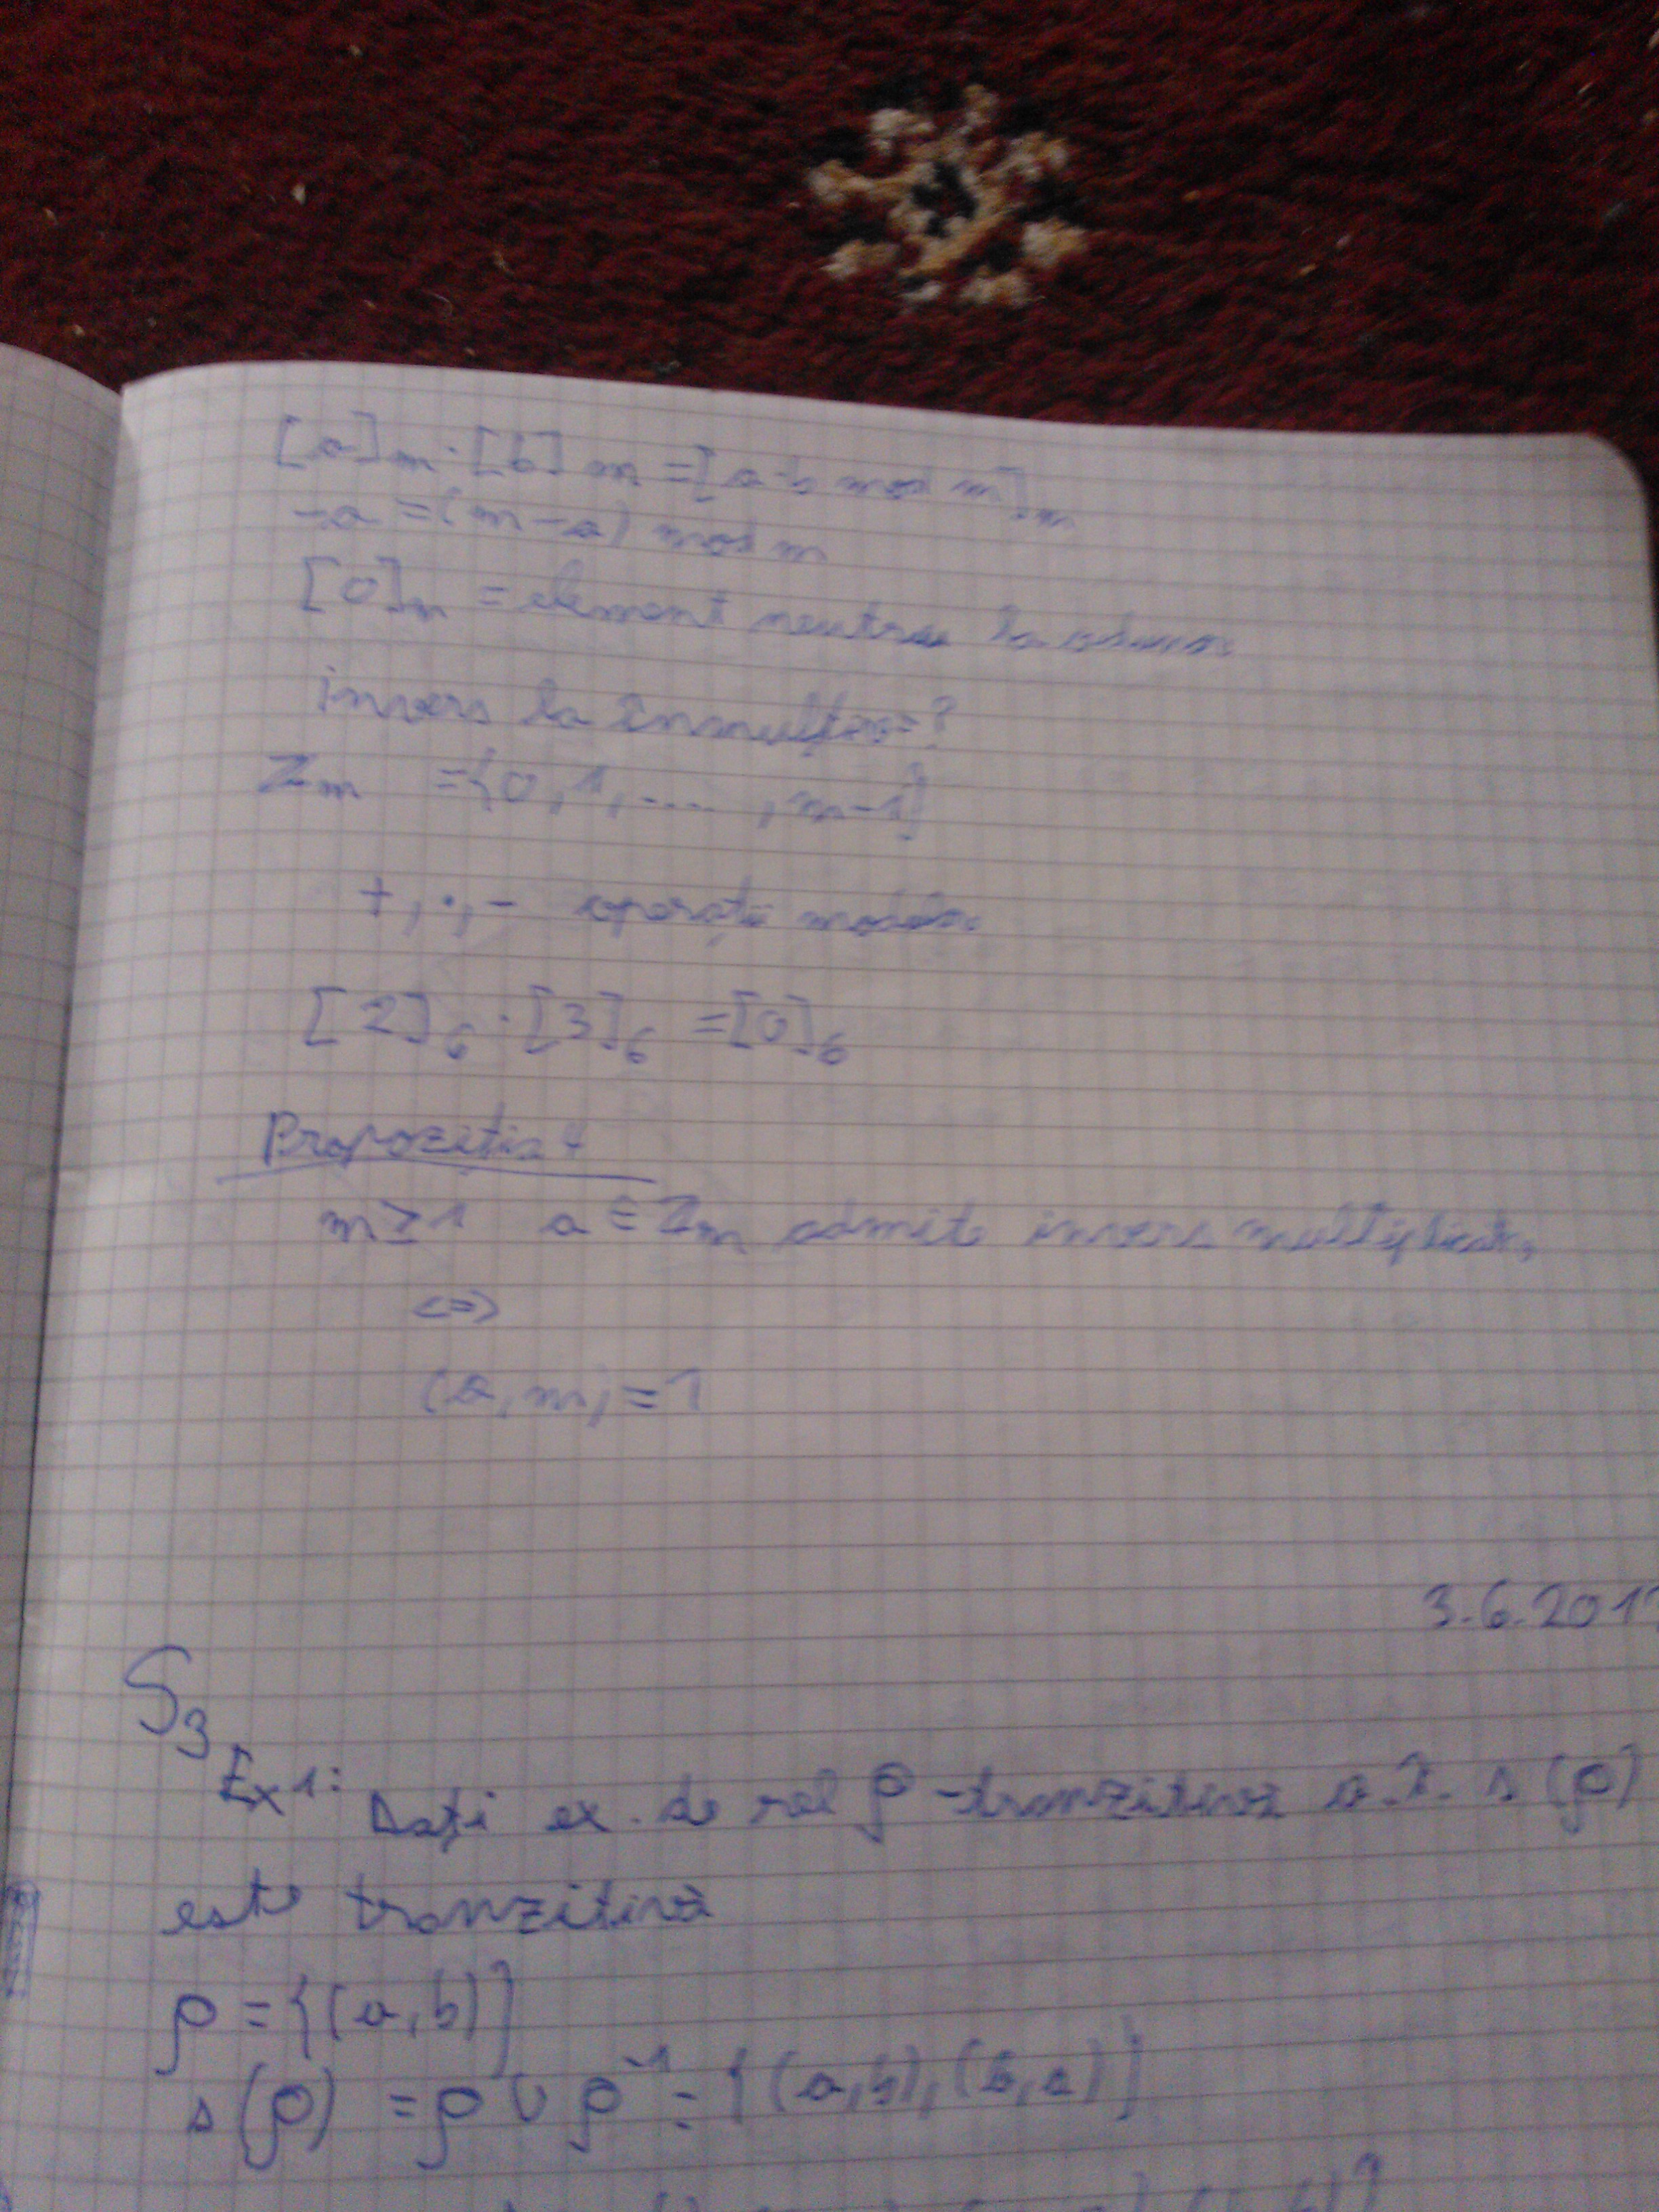 [a]m · [b]m = [a·b mod m]m
-a = (m-a) mod m
[0]m = element neutru la
invers la înmulțire = ?
Zm = {0, 1, ...., m-1}
+, ·, - operații
[2]6 · [3]6 = [0]6
Propoziția 4
m ≥ 1 a ∈ Zm admite invers
<=>
(a, m) = 1
3.6.201
S3
Ex 1: Dați ex. de rel ρ-tranzitivă a.î. s(ρ)
este tranzitivă
ρ = {(a,b)}
s(ρ) = ρ ∪ ρ⁻¹ = {(a,b),(b,a)}